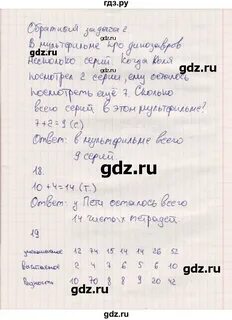 гдз.ру
Обратная задача 2
В мультфильме про динозавров
несколько серий. Когда Коля
посмотрел 2 серии, ему осталось
посмотреть ещё 7. Сколько
всего серий в этом мультфильме?
7+2=9 (с.)
Ответ: в мультфильме всего
9 серий
18.
10+4=14 (т.)
Ответ: у Пети осталось всего
14 чистых тетрадей.
19
уменьшаемое 12 74 15 14 26 52
Вычитаемое 2 4 7 5 6 10
Разность 10 70 8 9 20 42
gdz.ru